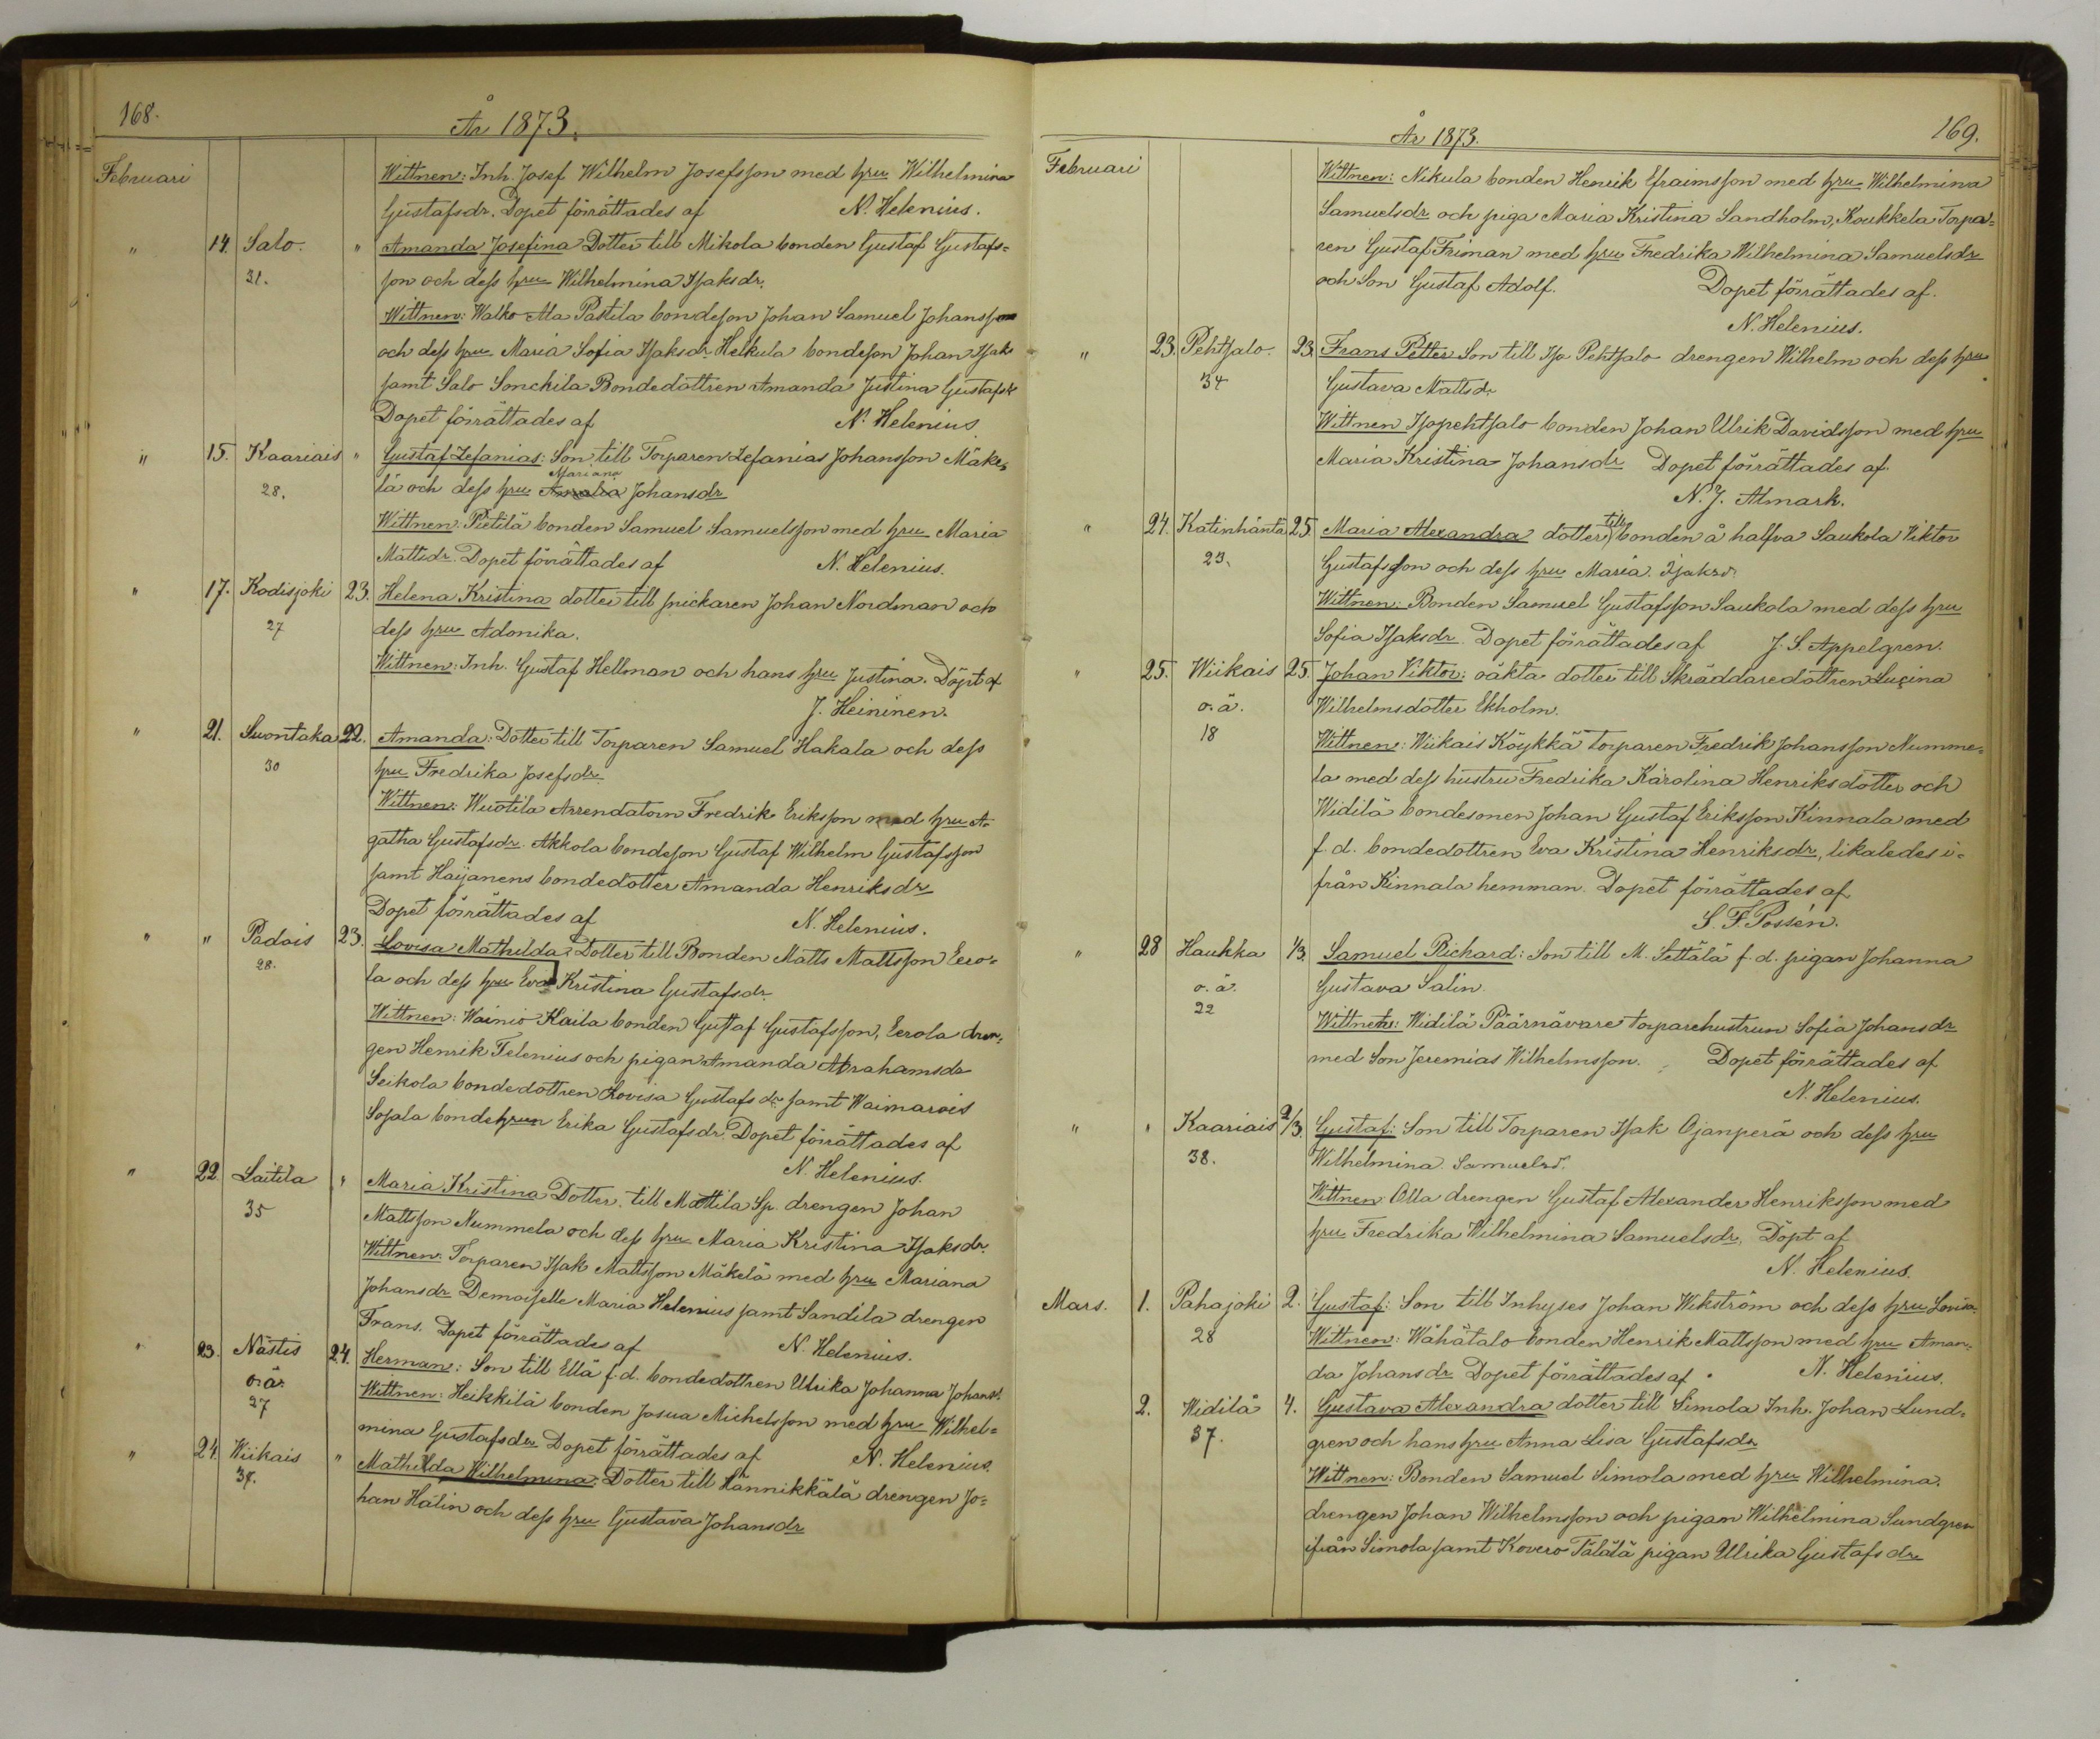 168.
År 1873.
Februari
Wittnen: Inh. Josef Wilhelm Josefsson med hru Wilhelmina
Gustafsdr. Dopet förrättades af N. Helenius.
" 14. Salo. " Amanda Josefina Dotter till Mikola bonden Gustaf Gustafs=
31. son och dess hru Wilhelmina Isaksdr.
Wittnen: Walko Ala Pastila bondeson Johan Samuel Johansson
och dess hru Maria Sofia Isaksdr. Helkula bondeson Johan Isaks
samt Salo Sonckila Bondedottren Amanda Justina Gustafsdr
Dopet förrättades af N. Helenius
" 15. Kaariais " Gustaf Zefanias: Son till Torparen Zefanias Johansson Mäke=
Mariana
28. lä och dess hru Amalia Johansdr
Wittnen: Pietilä bonden Samuel Samuelsson med hru Maria
Mattsdr. Dopet förrättades af N. Helenius.
" 17. Kodisjoki 23. Helena Kristina dotter till snickaren Johan Nordman och
27 dess hru Adonika.
Wittnen: Inh. Gustaf Hellman och hans hru Justina. Döpt af
J. Heininen.
" 21. Suontaka 22. Amanda: Dotter till Torparen Samuel Hakala och dess
30 hru Fredrika Josefsdr
Wittnen: Wuotila Arrendatorn Fredrik Eriksson med hru A=
gatha Gustafsdr. Akkola bondeson Gustaf Wilhelm Gustafsson
samt Haijanens bondedotter Amanda Henriksdr
Dopet förrättades af N. Helenius.
" " Padois 23. Lovisa Mathilda: Dotter till Bonden Matts Mattsson Eero=
28. la och dess hru Eva Kristina Gustafsdr.
Wittnen: Wainio Kaila bonden Gustaf Gustafsson, Eerola dren=
gen Henrik Telenius och pigan Amanda Abrahamsdr
Seikola bondedottren Lovisa Gustafsdr. samt Waimarois
Sojala bondehrun Erika Gustafsdr. Dopet förrättades af
N. Helenius.
" 22. Laitila " Maria Kristina Dotter till Mattila Sp. drengen Johan
35 Mattsson Nummela och dess hru Maria Kristina Isaksdr.
Wittnen: Torparen Isak Mattsson Mäkelä med hru Mariana
Johansdr Demoiselle Maria Helenius samt Sandila drengen
Frans. Dopet förrättades af N. Helenius.
" 23. Nästis 24. Herman: Son till Ellä f.d. bondedottren Ulrika Johanna Johansd.
o.ä. Wittnen: Heikkilä bonden Josua Michelsson med hru Wilhel=
27 mina Gustafsdr Dopet förrättades af N. Helenius.
" 24. Wiikais " Mathilda Wilhelmina: Dotter till Männikkälä drengen Jo=
37. han Hälin och dess hru Gustava Johansdr
169.
År 1873.
Februari
Wittnen: Nikula bonden Henrik Efraimsson med hru Wilhelmina
Samuelsdr och piga Maria Kristina Sandholm, Koukkela Torpa=
ren Gustaf Friman med hru Fredrika Wilhelmina Samuelsdr
och Son Gustaf Adolf. Dopet förrättades af.
N. Helenius.
" 23. Pehtsalo. 23. Frans Petter Son till Iso Pehtsalo drengen Wilhelm och dess hru
34 Gustava Mattsdr
Wittnen Isopehtsalo bonden Johan Ulrik Davidsson med hru
Maria Kristina Johansdr Dopet förrättades af.
N. J. Almark.
" 24. Katinhäntä 25. Maria Alexandra dotter till bonden å halfva Saukola Viktor
23. Gustafsson och dess hru Maria. Isaksd.
Wittnen: Bonden Samuel Gustafsson Saukola med dess hru
Sofia Isaksdr. Dopet förrättades af J. S. Appelgren.
" 25. Wiikais 25. Johan Viktor: oäkta dotter till Skräddaredottren Lucina
o.ä. Wilhelmsdotter Ekholm.
18 Wittnen: Wiikais Köykkä torparen Fredrik Johansson Numme=
la med dess hustru Fredrika Karolina Henriksdotter och
Widilä bondesonen Johan Gustaf Eriksson Kinnala med
f.d. bondedottren Eva Kristina Henriksdr, likaledes i=
från Kinnala hemman. Dopet förrättades af
S. F. Possén.
" 28 Haukka 1/3. Samuel Richard: Son till M. Settälä f.d. pigan Johanna
o.ä. Gustava Salin.
22 Wittnen: Widilä Päärnävare torparehustrun Sofia Johansdr
med Son Jeremias Wilhelmsson. Dopet förrättades af
N. Helenius.
" " Kaariais 2/3. Gustaf: Son till Torparen Isak Ojanperä och dess hru
38. Wilhelmina Samuelsd.
Wittnen: Olla drengen Gustaf Alexander Henriksson med
hru Fredrika Wilhelmina Samuelsdr, Döpt af
N. Helenius.
Mars. 1. Pahajoki 2. Gustaf: Son till Inhyses Johan Wikström och dess hru Lovisa.
28 Wittnen: Wähätalo bonden Henrik Mattsson med hru Aman=
da Johansdr. Dopet förrättades af N. Helenius.
2. Widilä 4. Gustava Alexandra dotter till Simola Inh. Johan Lund=
37. gren och hans hru Anna Lisa Gustafsdr
Wittnen: Bonden Samuel Simola med hru Wilhelmina.
drengen Johan Wilhelmsson och pigan Wilhelmina Sundgren
ifrån Simola samt Kovero Tälälä pigan Ulrika Gustafsdr